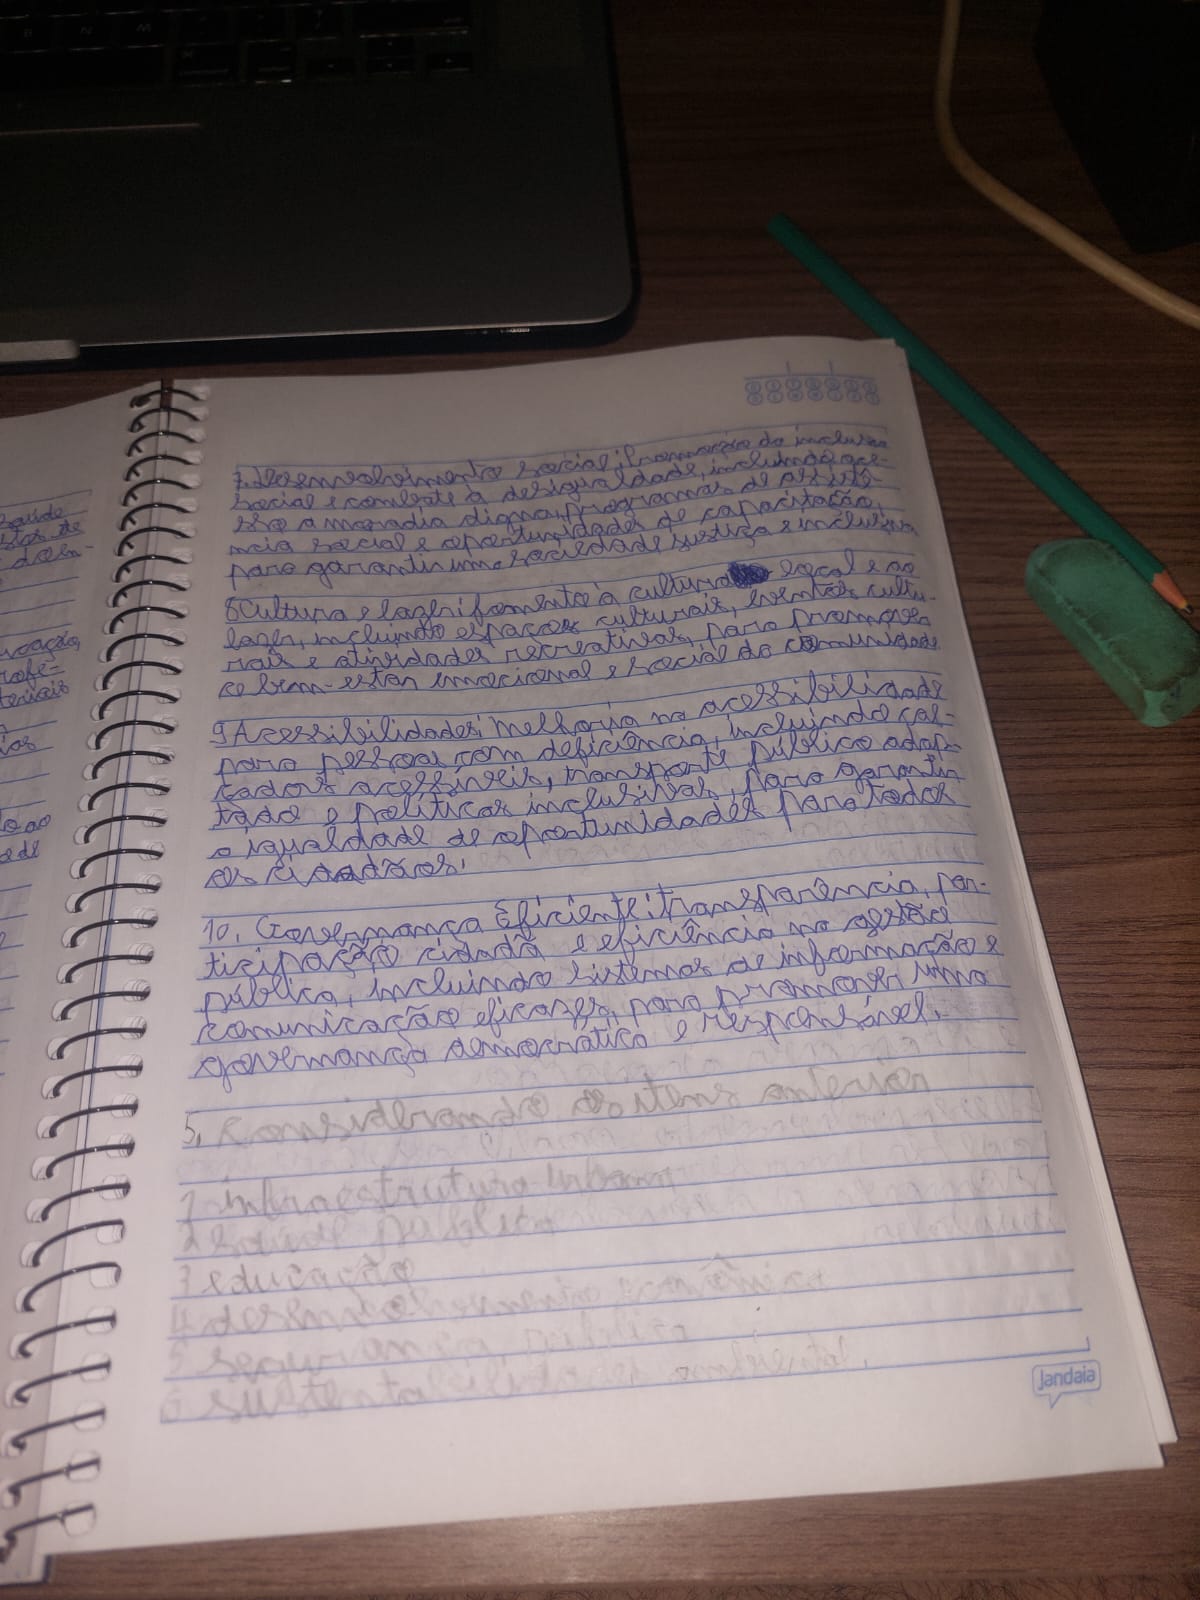 7. Desenvolvimento social: Promoção da inclusão
social e combate à desigualdade, incluindo ace-
sso a moradia digna, programas de assistê-
ncia social e oportunidades de capacitação,
para garantir uma sociedade justiça e inclusiva
8 Cultura e lazer: fomento à cultura local e ao
lazer, incluindo espaços culturais, eventos cultu-
rais e atividades recreativas, para promover
o bem-estar emocional e social da comunidade
9 Acessibilidades: Melhoria na acessibilidade
para pessoas com deficiência, incluindo cal-
çadas acessíveis, transporte público adap-
tado e políticas inclusivas, para garantir
a igualdade de oportunidades para todos
os cidadãos.
10. Governança Eficiente: transparência, par-
ticipação cidadã e eficiência na gestão
pública, incluindo sistemas de informação e
comunicação eficazes, para promover uma
governança democrática e responsável.
5.
1 infraestrutura urbana
2 saúde publica
3 educação
4
5 segurança publica
6
Jandaia
saúde
ucação,
rofe-
teriais